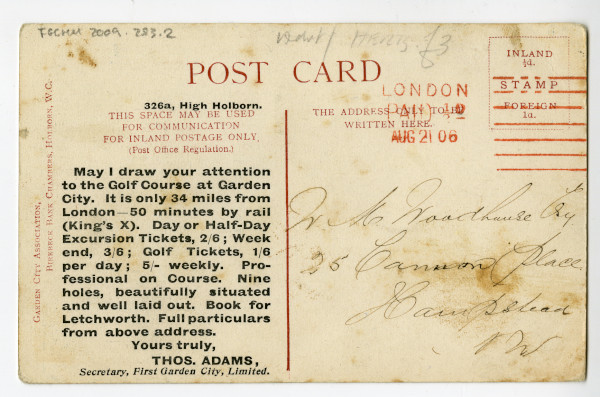 FGCHM 2009.283.2
£3
POST CARD
326a, High Holborn.
THIS SPACE MAY BE USED
FOR COMMUNICATION
FOR INLAND POSTAGE ONLY.
(Post Office Regulation.)
May I draw your attention
to the Golf Course at Garden
City. It is only 34 miles from
London—50 minutes by rail
(King's X). Day or Half-Day
Excursion Tickets, 2/6; Week
end, 3/6; Golf Tickets, 1/6
per day; 5/- weekly. Pro-
fessional on Course. Nine
holes, beautifully situated
and well laid out. Book for
Letchworth. Full particulars
from above address.
Yours truly,
THOS. ADAMS,
Secretary, First Garden City, Limited.
GARDEN CITY ASSOCIATION,
BIRKBECK BANK CHAMBERS, HOLBORN, W.C.
THE ADDRESS ONLY TO BE
WRITTEN HERE.
LONDON
PAID ½D
AUG 21 06
INLAND
½d.
STAMP
FOREIGN
1d.
W M Woodhouse Esq
25 Cannon Place
Hampstead
NW